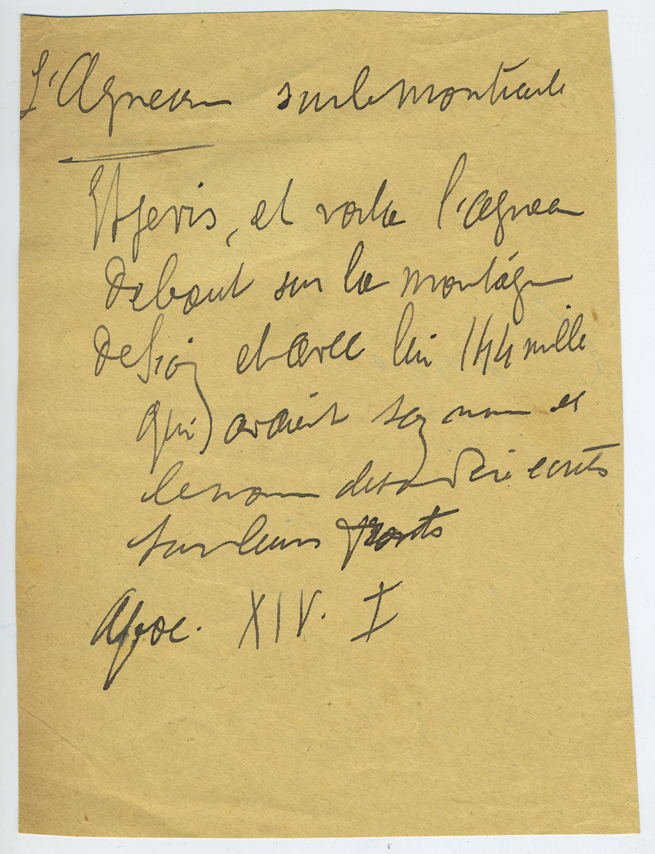 L'Agneau sur le monticule
Et je vis, et voila l'agneau
debout sur la montagne
de Sion et avec lui 144 mille
qui avaient son nom et
le nom de son Père ecrits
sur leurs fronts
Apoc. XIV. I